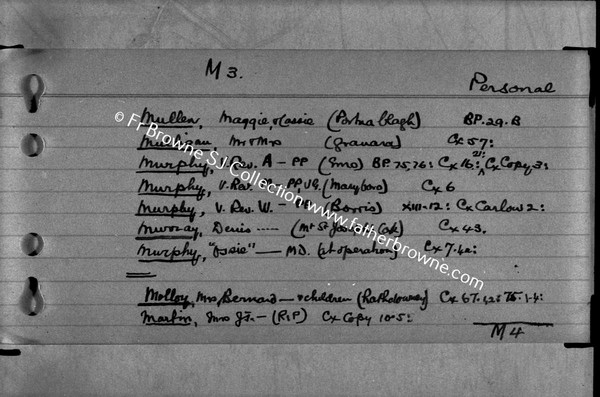 M 3.
Personal
Mullen, Maggie, & Cassie (Portna blagh) BP. 29. B
Mulligan, Mr & Mrs (Granard) Cx 57:
Murphy, V. Rev. A - PP (Emo) BP. 75, 76: Cx 16: 21: Cx Copy 3:
Murphy, V. Rev. - PP, VG. (Maryboro) Cx 6
Murphy, V. Rev. W. - (Borris) XIII-12: Cx Carlow 2:
Murray, Denis ---- (Mt St Joseph's Cork) Cx 43.
Murphy, "Jssie" — MD. (at operation) Cx 7. 42:
Molloy, Mrs Bernard — & children (Rathdowney) Cx 67, 42: 75. 1-4:
Martin, Mrs JT. - (RIP) Cx Copy 10. 5:
M 4
© Fr Browne SJ Collection www.fatherbrowne.com